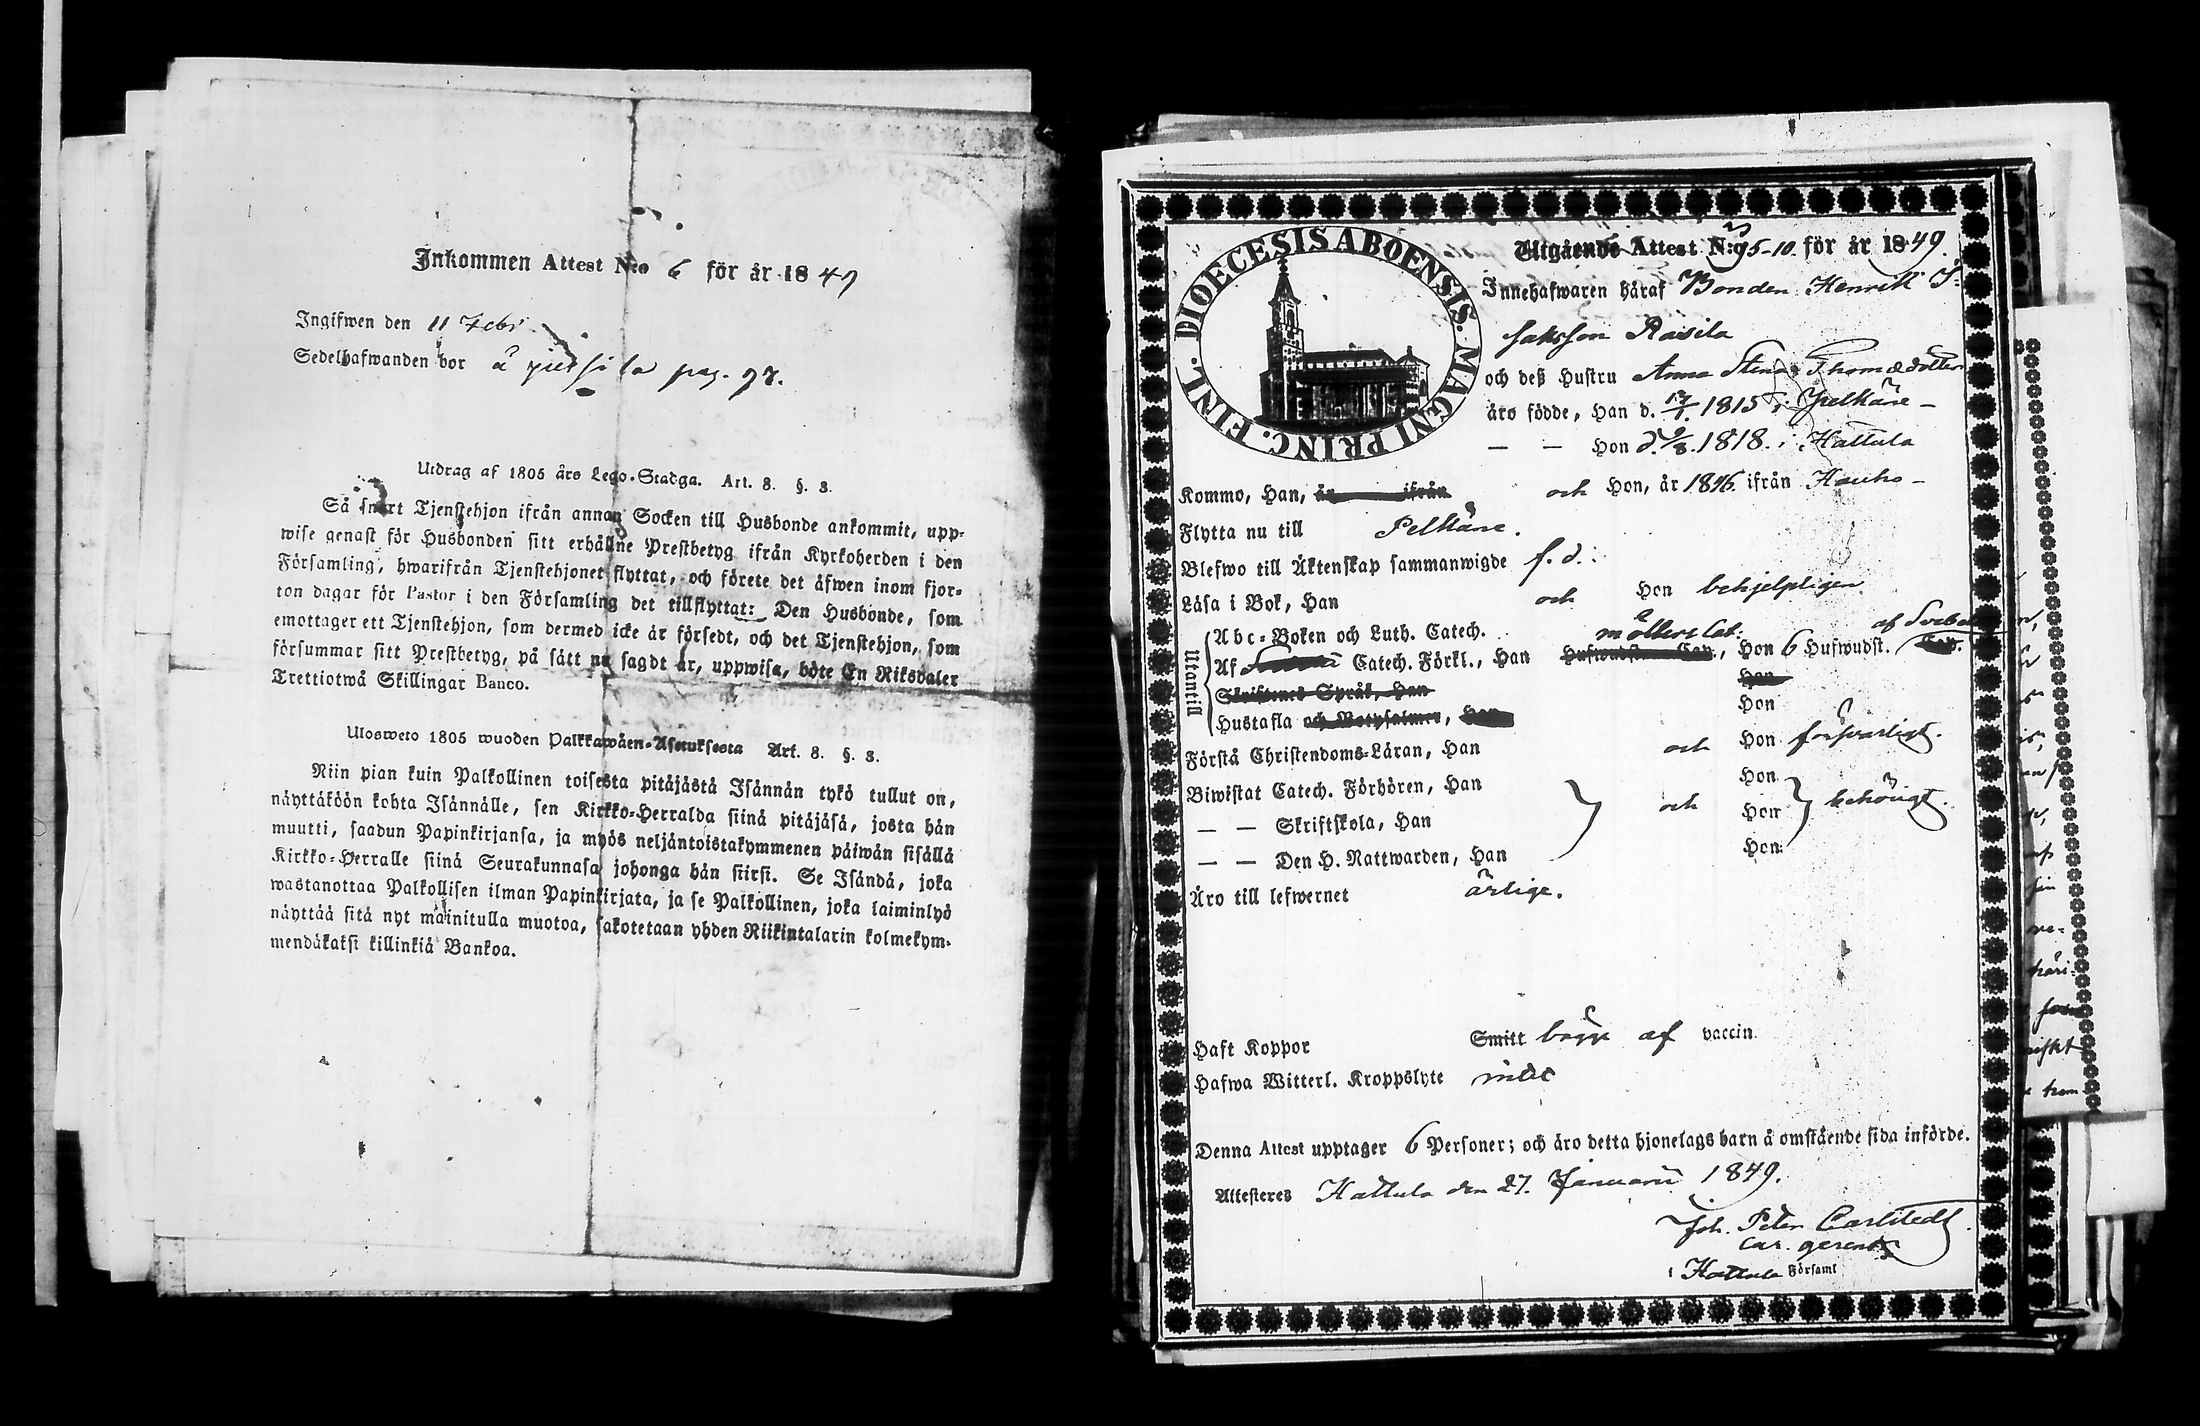 Inkommen Attest N:o 6 för år 1849
Ingifwen den 11 Febr.
Sedelhafwanden bor å pag. 97.
Utdrag af 1805 års Lego-Stadga. Art. 8. §. 3.
Så snart Tjenstehjon ifrån annan Socken till Husbonde ankommit, upp-
wise genast för Husbonden sitt erhållne Prestbetyg ifrån Kyrkoherden i den
Församling, hwarifrån Tjenstehjonet flyttat, och förete det äfwen inom fjor-
ton dagar för Pastor i den Församling det tillflyttat: Den Husbonde, som
emottager ett Tjenstehjon, som dermed icke är försedt, och det Tjenstehjon, som
försummar sitt Prestbetyg, på sätt nu sagdt är, uppwisa, böte En Riksdaler
Trettiotwå Skillingar Banco.
Ulosweto 1805 wuoden Palkkawäen-Asetuksesta Art. 8. §. 3.
Niin pian kuin Palkollinen toisesta pitäjästä Isännän tykö tullut on,
näyttäköön kohta Isännälle, sen Kirkko-Herralda siinä pitäjäsä, josta hän
muutti, saadun Papinkirjansa, ja myös neljäntoistakymmenen päiwän sisällä
Kirkko-Herralle siinä Seurakunnasa johonga hän siirsi. Se Isändä, joka
wastanottaa Palkollisen ilman Papinkirjata, ja se Palkollinen, joka laiminlyö
näyttää sitä nyt mainitulla muotoa, sakotetaan yhden Riikintalarin kolmekym-
mendäkaksi killinkiä Bankoa.
DIOECESIS ABOENSIS. MAGNI PRINC. FINL.
Utgående Attest N:o 5-10. för år 1849.
Innehafwaren häraf Bonden Henrik I:
saksson Räsila
och deß Hustru Anna Stina Thomædotter
äro födde, Han d. 17/1. 1815 i Pelkäne –
— — Hon d. 9/8. 1818. i Hattula
Kommo, Han, år ifrån och Hon, år 1846 ifrån Hauho –
Flytta nu till Pelkäne.
Blefwo till Äktenskap sammanwigde f. d.:
Läsa i Bok, Han och Hon behjelpligen
Utantill
Abc-Boken och Luth. Catech. möllers Cat. af Sveb
Af Catech. Förkl., Han Hufwudst. Cap., Hon 6 Hufwudst. Cap.
Skriftenes Språk, Han Hon
Hustafla och Botpsalmer, Han Hon
Förstå Christendoms-Läran, Han och Hon försvarligt.
Biwistat Catech. Förhören, Han Hon
— — Skriftskola, Han och Hon behörigt.
— — Den H. Nattwarden, Han Hon
Äro till lefwernet ärlige.
Haft Koppor Smitt begge af vaccin
Hafwa Witterl. Kroppslyte intet
Denna Attest upptager 6 Personer; och äro detta hjonelags barn å omstående sida införde.
Attesteres Hattula den 27. Januarii 1849.
Joh. Peter Carlstedt.
i Hattula Församl